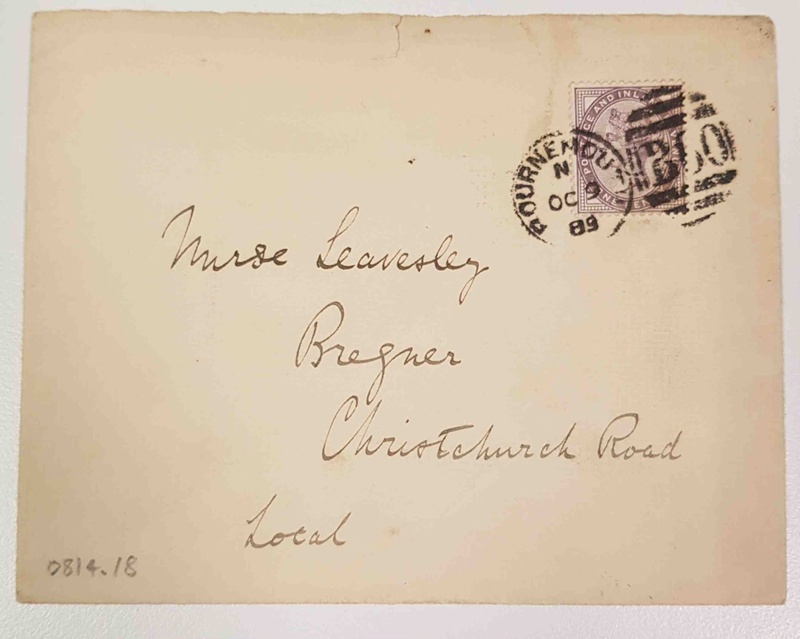 POSTAGE AND INL
BOURNEMOUT
N
OC 9
89
Nurse Leavesley
Bregner
Christchurch Road
Local
0814.18